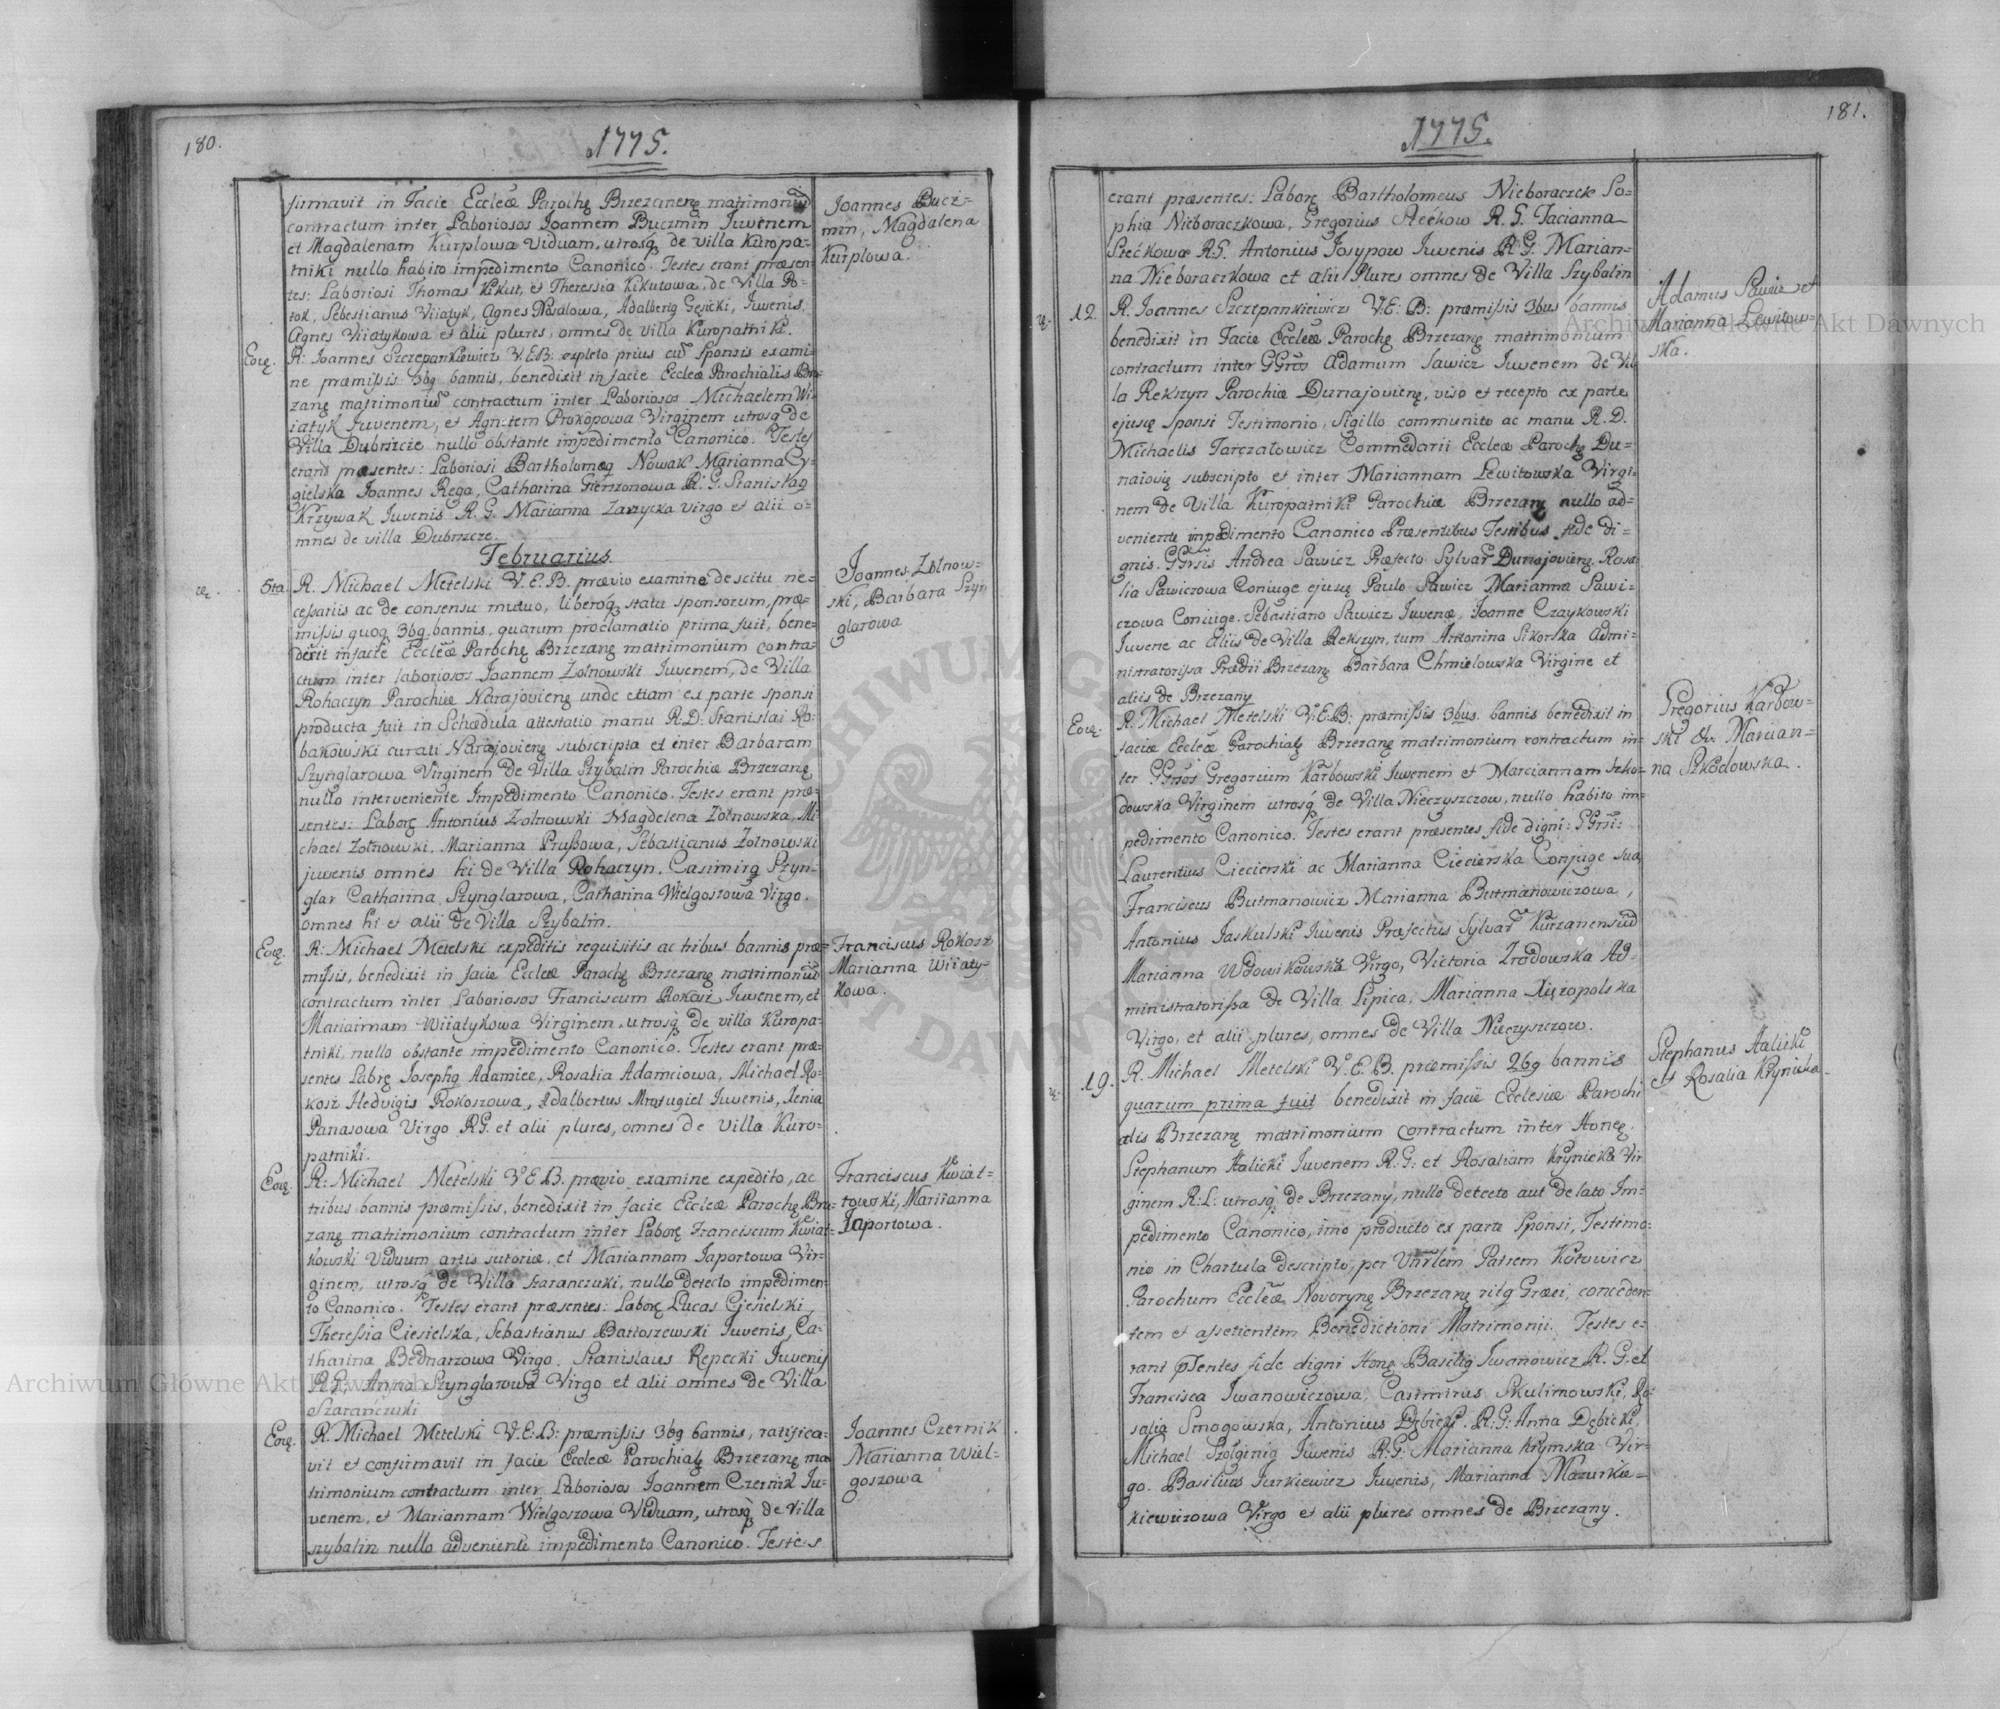 180.
1775.
firmavit in Facie Eccleæ Parochę Brzezanenę matrimoniū
contractum inter Laboriosos Joannem Buczmin Juvenem
et Magdalenam Kurplowa Viduam, utrosq de villa Kuropa=
tniki nullo habito impedimento Canonico. Testes erant præsen=
tes: Laboriosi Thomas Kikut, et Theressia Kikutowa, de Villa Po=
tok, Sebestianus Viiatyk, Agnes Adalberg Gęsicki, Juvenis,
Agnes Viiatykowa et alii plures, omnes de villa Kuropatniki.
Joannes Bucz=
min, Magdalena
Kurplowa.
Eoię. R: Joannes Szczepankiewicz V.E.B: expleto prius cū Sponsis exami=
ne præmissis 3bg bannis, benedixit in facie Eccleæ Parochialis Brze
zanę matrimoniū contractum inter Laboriosos Michaelem Wi=
iatyk Juvenem, et Agnetem Prokopowa Virginem utrosq de
Villa Dubrszcze nullo obstante impedimento Canonico. Testes
erant præsentes: Laboriosi Bartholomeg Nowak Marianna Cy=
gielska Joannes Rega, Catharina R. G. Stanislag
Krzywak Juvenis R. G. Marianna Zarzycka virgo et alii o=
mnes de villa Dubrszcze.
Februarius.
5ta. R. Michael Metelski V.E.B. prævio examine de scitu ne=
cessariis ac de consensu mutuo, liberoq statu sponsorum, præ=
missis quoq 3bg bannis, quarum proclamatio prima fuit, bene=
dixit in facie Eccleæ Parochę Brzezanę matrimonium contra=
ctum inter laboriosos Joannem Żołnowski Juvenem, de Villa
Rohaczyn Parochiæ Narajovienę unde etiam ex parte sponsi
producta fuit in Schædula attestatio manu R.D. Stanislai Ro=
bakowski curati Narajovienę subscripta et inter Barbaram
Szynglarowa Virginem de Villa Szybalin Parochiæ Brzezanę
nullo interveniente Impedimento Canonico. Testes erant præ=
sentes: Laborę Antonius Żołnowski Magdelena Żołnowska, Mi
chael Żołnowski. Marianna Prussowa, Sebastianus Żołnowski
juvenis omnes hi de Villa Rohaczyn. Casimirg Szyn=
glar Catharina Szynglarowa, Catharina Wielgoszowa Virgo.
omnes hi et alii de Villa Szybalin.
Joannes Żołnow=
ski, Barbara Szyn
glarowa
Eoię. R: Michael Metelski expeditis requisitis ac tribus bannis præ=
missis, benedixit in facie Eccleæ Parochę Brzezanę matrimoniū
contractum inter Laboriosos Franciscum Rokosz Juvenem, et
Mariannam Wiiatykowa Virginem, utrosq de villa Kuropa=
tniki, nullo obstante impedimento Canonico. Testes erant præ=
sentes Labrę Josephg Adamiec, Rosalia Adamciowa, Michael Ro=
kosz Hedvigis Rokoszowa, Adalbertus Mrozugiel Juvenis, Xenia
Panasowa Virgo R.G. et alii plures, omnes de villa Kuro=
patniki.
Franciscus Rokosz
Marianna Wiiaty=
kowa.
Eoię. R: Michael Metelski V.E.B. prævio examine expedito, ac
tribus bannis præmissis, benedixit in facie Eccleæ Parochę Brze=
zanę matrimonium contractum inter Laborę Franciscum Kwiat=
kowski Viduum artis sutoriæ, et Mariannam Japortowa Vir=
ginem, utrosq de Villa Szaranczuki, nullo detecto impedimen=
to Canonico. Testes erant præsentes: Laborę Lucas Cjesielski,
Theressia Ciesielska, Sebastianus Bartoszewski Juvenis, Ca=
tharina Bednarzowa Virgo. Stanislaus Repecki Juvenis
R.G. Anna Szynglarowa Virgo et alii omnes de Villa
Szaranczuki
Franciscus Kwiat=
kowski, Mariianna
Japortowa.
Eoię. R. Michael Metelski V.E.B: præmissis 3bg bannis, ratifica=
vit et confirmavit in facie Eccleæ Parochialę Brzezanę ma
trimonium contractum inter Laboriosos Joannem Czernik Ju=
venem, et Mariannam Wielgoszowa Viduam, utrosq de Villa
szybalin nullo adveniente impedimento Canonico. Testes
Joannes Czernik
Marianna Wiel=
goszowa
181.
1775.
erant præsentes: Laborę Bartholomeus Nieboraczek So=
phia Nieboraczkowa, Gregorius Stećkow R. G. Tacianna
Stećkowa R.G. Antonius Josypow Juvenis R.G. Marian=
na Nieboraczkowa et alii Plures omnes de Villa Szybalin
12. R. Joannes Szczepankiewicz V.E.B: præmissis 3bus bannis
benedixit in Facie Eccleæ Parochę Brzezanę matrimonium
contractum inter GGros Adamum Sawicz Juvenem de Vil
la Rekszyn Parochiæ Dunajovienę, viso et recepto ex parte
ejusę Sponsi Testimonio, Sigillo communito ac manu R.D.
Michaelis Tarczałowicz Commēdarii Eccleæ Parochę Du=
naiovię subscripto et inter Mariannam Lewitowska Virgi=
nem de Villa Kuropatniki Parochiæ Brzezanę nullo ad=
veniente impedimento Canonico Præsentibus Testibus fide di=
gnis. GGrsis Andrea Sawicz Præfecto Sylvarū Dunajovienę. Rosa
lia Sawiczowa Coniuge ejusę Paulo Sawicz Marianna Sawi=
czowa Coniuge. Sebastiano Sawicz Juvene, Joanne Czaykowski
Juvene ac aliis de Villa Rekszyn, tum Antonina Sikorska Admi=
nistratorissa Prædii Brzezanę Barbara Chmielowska Virgine et
aliis de Brzezany
Adamus Sawicz et
Marianna Lewitow=
ska.
Eoię. R. Michael Metelski V.E.B: præmissis 3bus. bannis benedixit in
faciæ Eccleæ Parochialę Brzezanę matrimonium contractum in=
ter GGros Gregorium Karbowski Juvenem et Marciannam Szko=
dowska Virginem utrosq de Villa Nieczyszczow, nullo habito im=
pedimento Canonico. Testes erant præsentes fide digni: GGrsi:
Laurentius Ciecierski ac Marianna Ciecierska Conjuge sua
Franciscus Butmanowicz Marianna Butmanowiczowa,
Antonius Jaskulski Juvenis Præfectus Sylvarū Kurzanensiūd
Marianna Wdowikowska Virgo, Victoria Zradowska Ad=
ministratorissa de Villa Lipica, Marianna Xięzopolska
Virgo, et alii plures, omnes de Villa Nieczyszczow.
Gregorius Karbow=
ski & Marcian=
na Szkodowska.
19. R. Michael Metelski V.E.B. præmissis 2bg bannis
quarum prima fuit benedixit in facie Ecclesiæ Parochi
alis Brzezanę matrimonium contractum inter Honeę.
Stephanum Halicki Juvenem R.G: et Rosaliam Krynicka Vir
ginem R.L: utrosq de Brzezany, nullo detecto aut delato Im=
pedimento Canonico, imo producto ex parte Sponsi, Testimo=
nio in Chartula descripto, per Patrem Kotowicz
Parochum Eccleæ Novorynę Brzezanę ritg Græci, conceden=
tem et assetientem Benedictioni Matrimonii. Testes e=
rant pſentes fide digni Honę Basilig Jwanowicz R.G. et
Francisca Jwanowiczowa, Casimirus Skulimowski, Ro=
salia Smogowska, Antonius Dębicki. R.G: Anna Dębicki,
Michael Juvenis R.G. Marianna Krymska Vir=
go. Basilius Jurkiewicz Juvenis, Marianna Mazurkie=
kiewiczowa Virgo et alii plures omnes de Brzezany.
Stephanus Halicki
et Rosalia Krynicka.
Archiwum Główne Akt Dawnych
Archiwum Główne Akt Dawnych